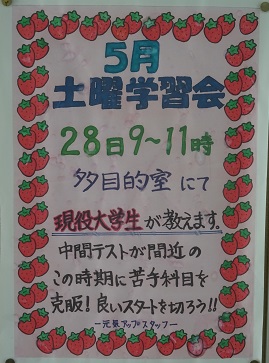 5月
土曜学習会
28日9～11時
多目的室にて
現役大学生が教えます。
中間テストが間近の
この時期に苦手科目を
克服！良いスタートを切ろう!!
ー元気アップスタッフー